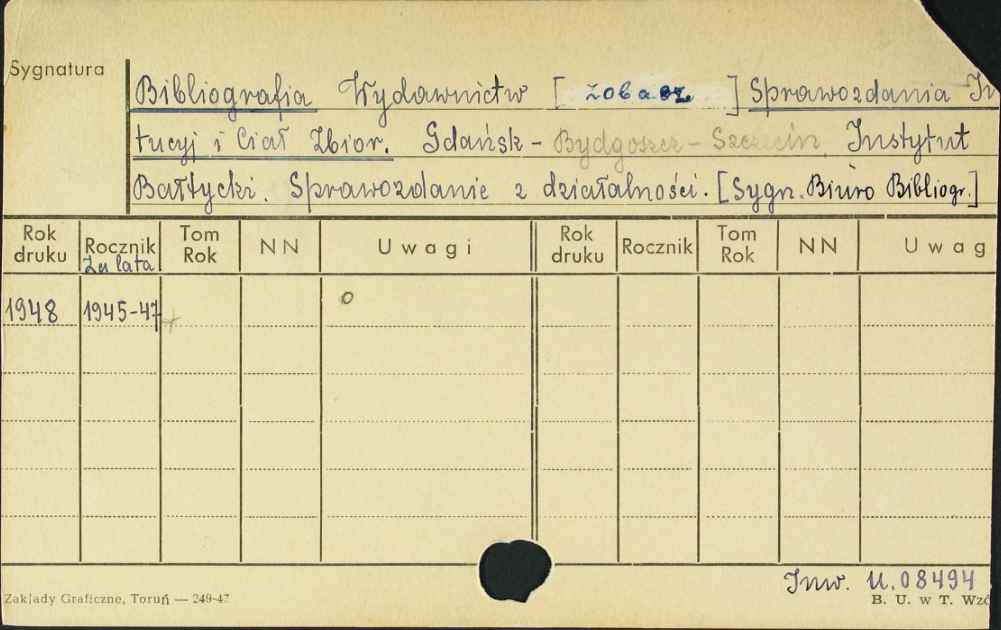 Sygnatura
Bibliografia Wydawnictw [ zobacz ] Sprawozdania In
tucyj i Ciał Zbior. Gdańsk - Bydgoszcz - Szczecin Instytut
Bałtycki. Sprawozdanie z działalności. [Sygn. Biuro Bibliogr.]
Rok druku Rocznik Tom Rok NN Uwagi Rok druku Rocznik Tom Rok NN Uwag
Za lata
1948 1945-47 + o
Inw. U. 08494
Zakłady Graficzne, Toruń — 249-47 B. U. w T. Wzó